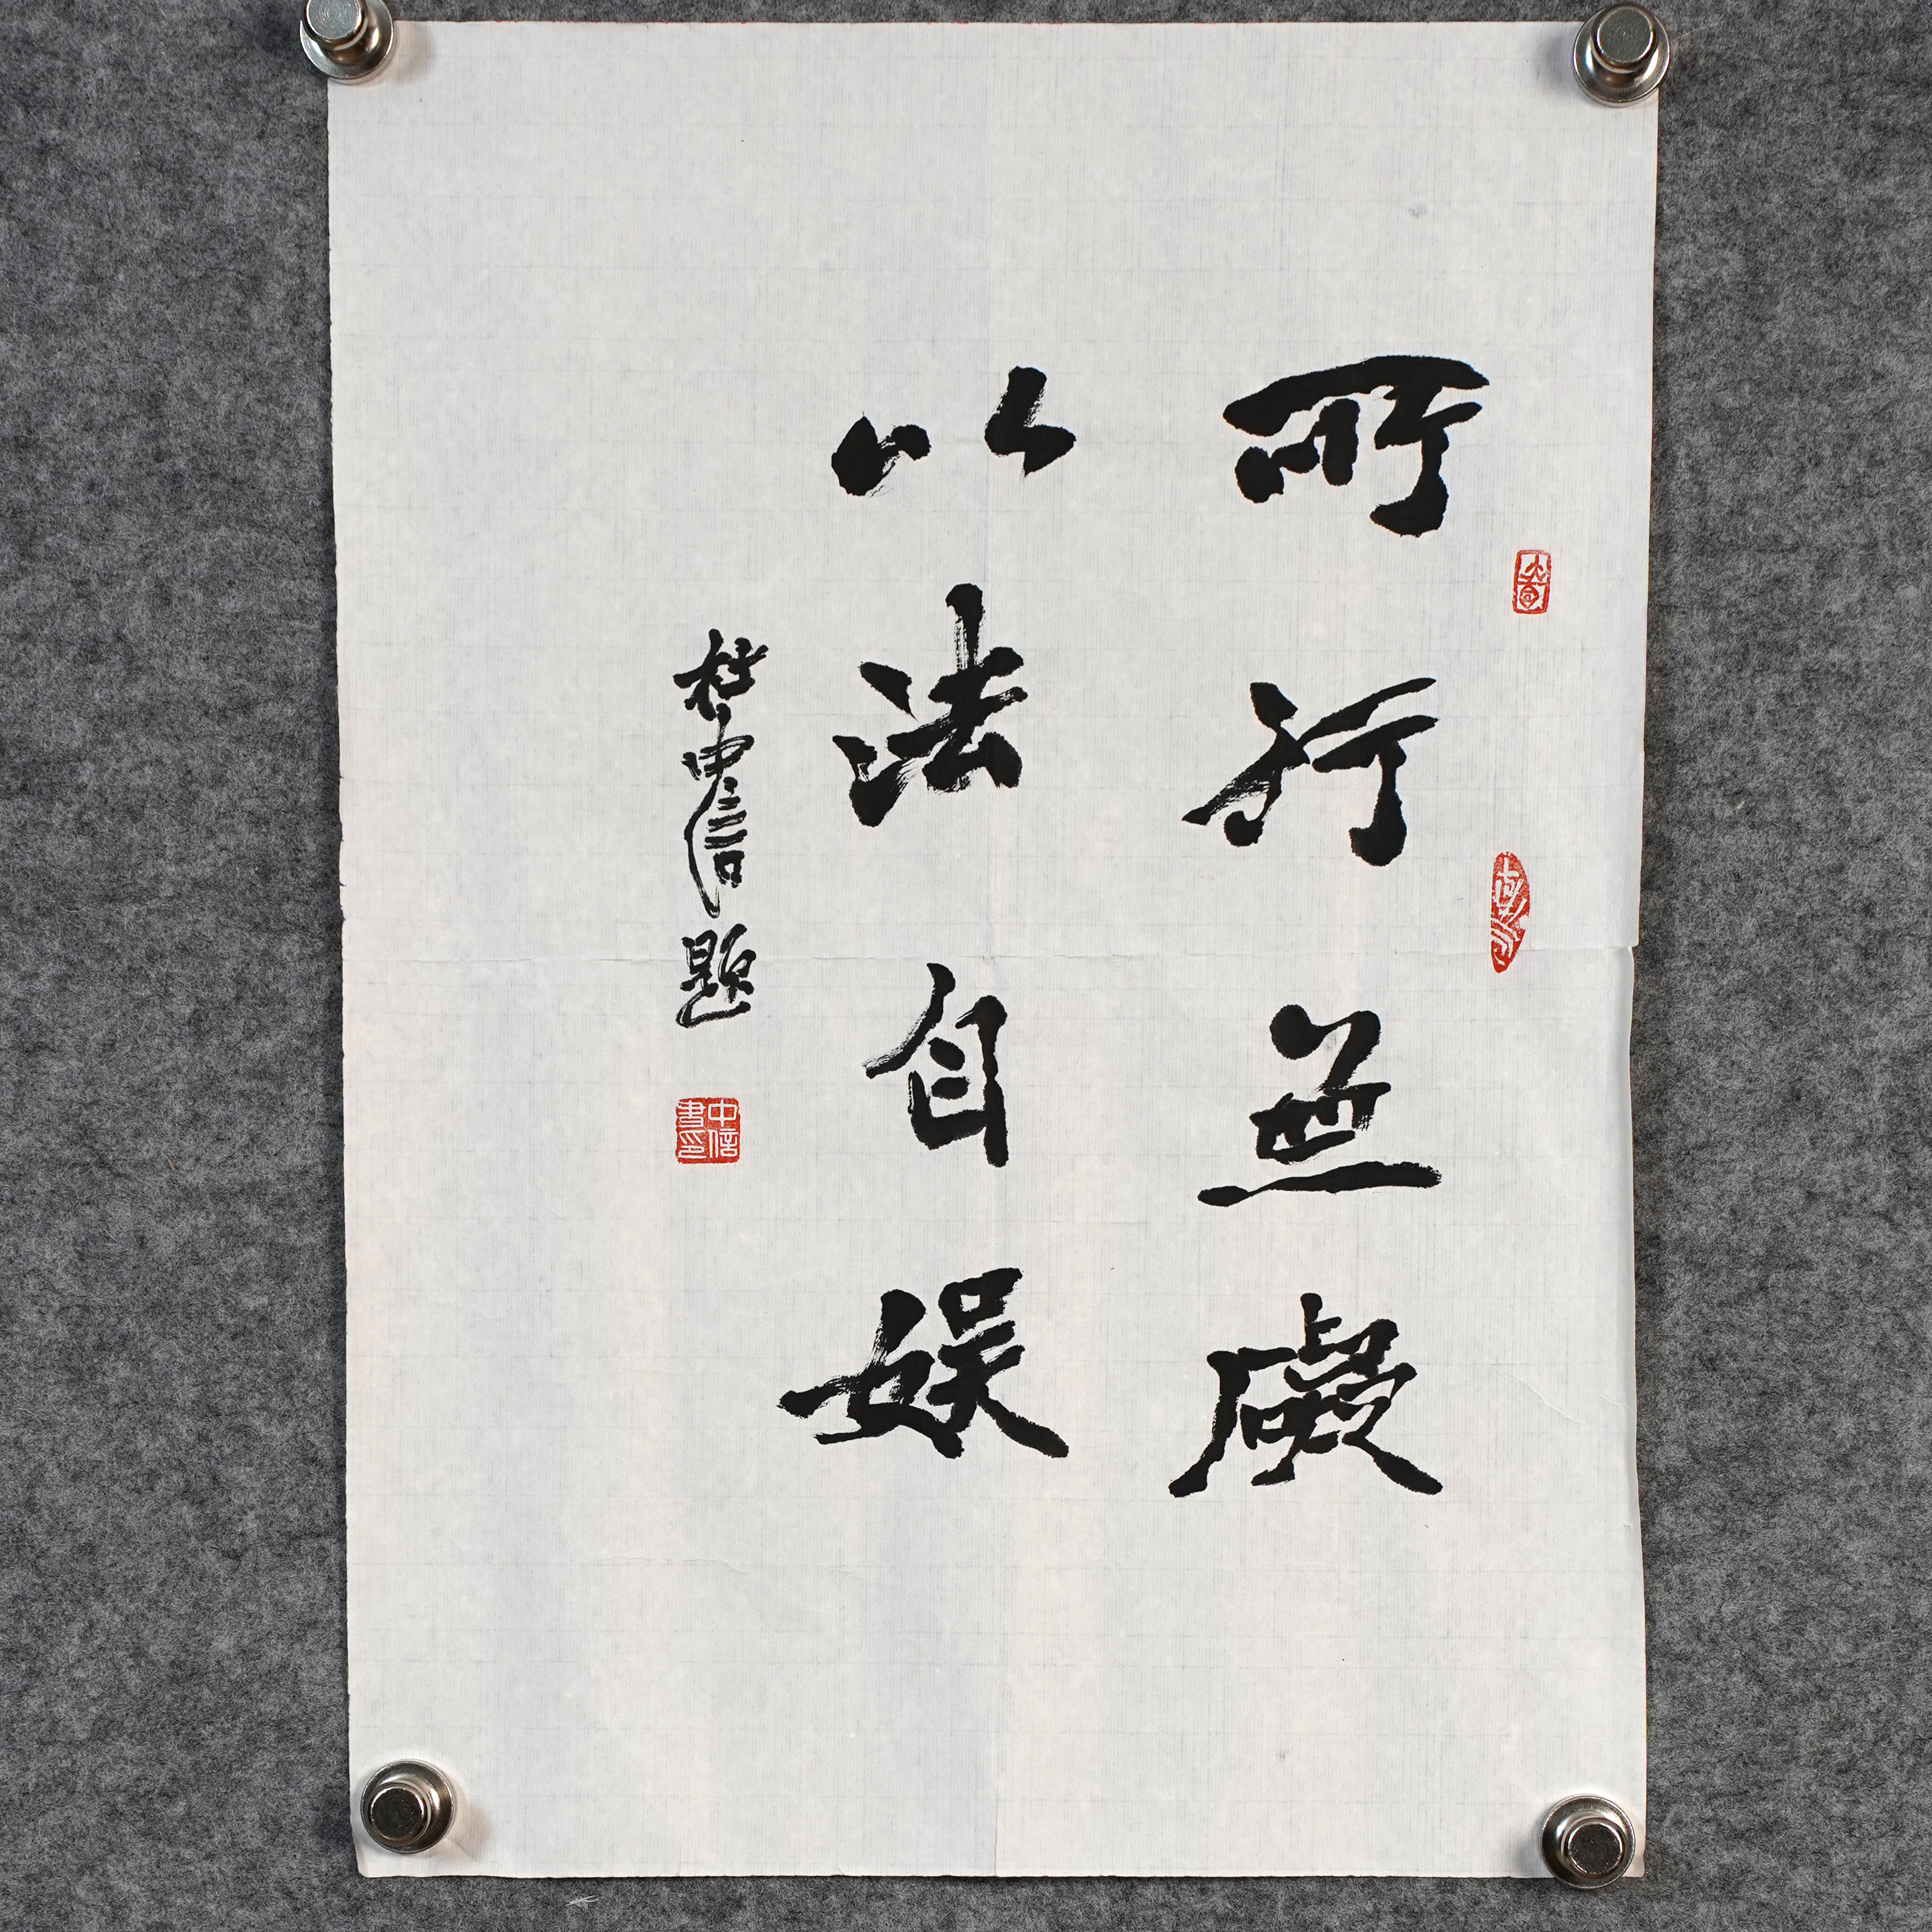 所行無礙
以法自娛
杜中信題
中信書印